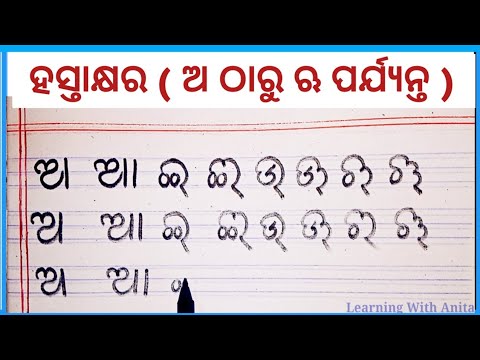 ହସ୍ତାକ୍ଷର ( ଅ ଠାରୁ ଋ ପର୍ଯ୍ୟନ୍ତ )
ଅ ଆ ଇ ଈ ଉ ଊ ଋ ୠ
ଅ ଆ ଇ ଈ ଉ ଊ ଋ ୠ
ଅ ଆ
Learning With Anita